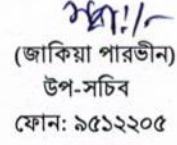 (জাকিয়া পারভীন)
উপ-সচিব
ফোন: ৯৫১২২০৫